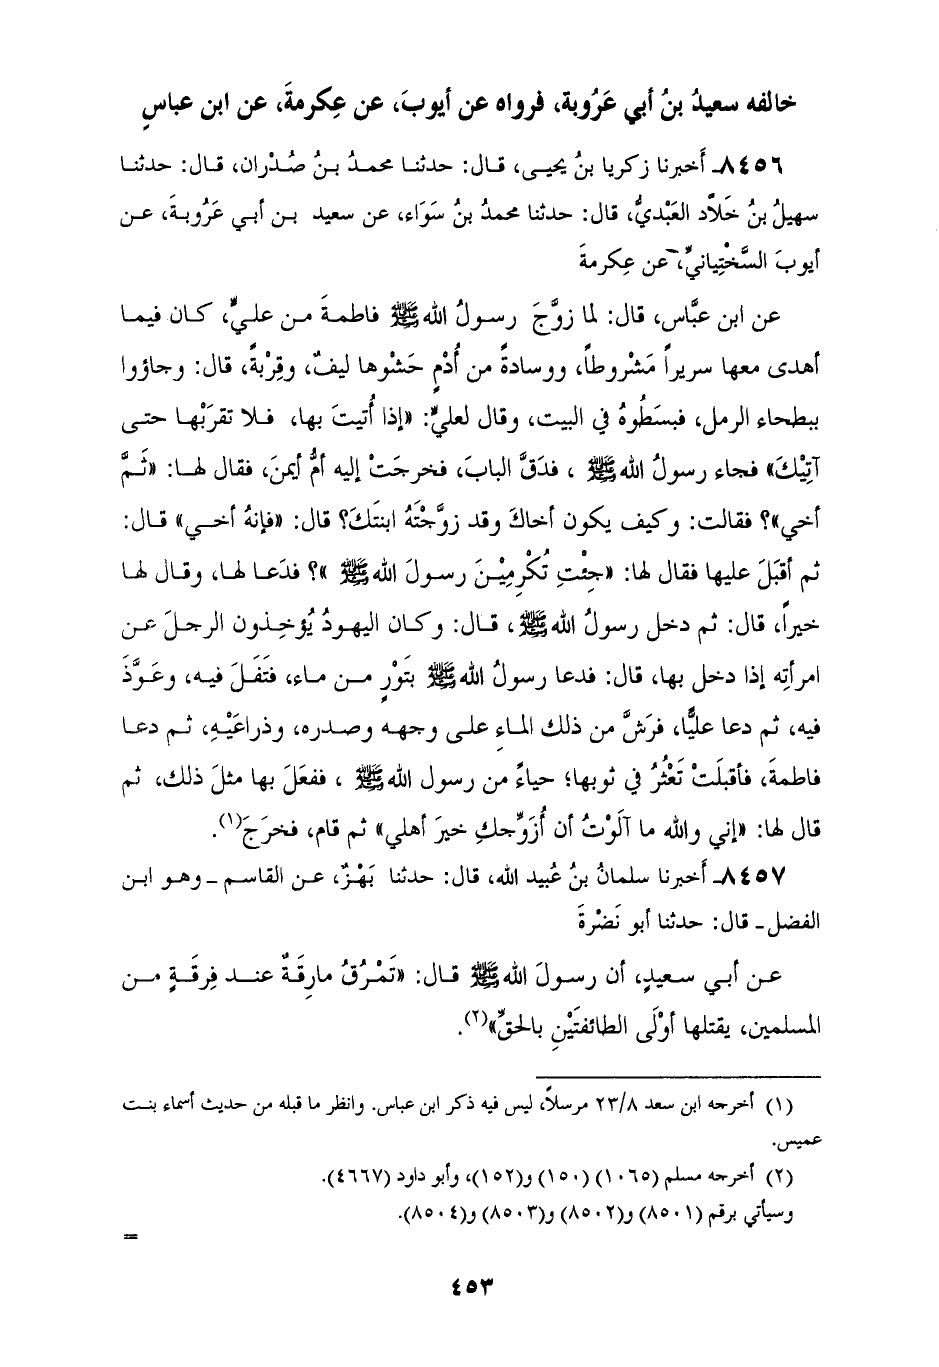 خالفه سعيدُ بنُ أبي عَرُوبة، فرواه عن أيوبَ، عن عِكرمةَ، عن ابن عباسٍ
٨٤٥٦ـ أخبرنا زكريا بنُ يحيى، قال: حدثنا محمدُ بنُ صُدْران، قال: حدثنا
سهيلُ بنُ خَلَّاد العَبْديُّ، قال: حدثنا محمدُ بنُ سَوَاء، عن سعيد بن أبي عَرُوبةَ، عن
أيوبَ السَّخْتِيانيِّ، عن عِكرمةَ
عن ابن عبَّاس، قال: لما زوَّجَ رسولُ الله ﷺ فاطمةَ من عليٍّ، كان فيما
أهدى معها سريراً مَشْروطاً، ووسادةً من أُدْمٍ حَشْوها ليفٌ، وقِرْبةً، قال: وجاؤوا
ببطحاء الرمل، فبسَطُوهُ في البيت، وقال لعليٍّ: «إذا أُتيتَ بها، فلا تقرَبْها حتى
آتِيْكَ» فجاء رسولُ الله ﷺ ، فدَقَّ البابَ، فخرجَتْ إليه أمُّ أيمنَ، فقال لها: «ثَمَّ
أخي»؟ فقالت: وكيف يكون أخاكَ وقد زوَّجْتَهُ ابنتَكَ؟ قال: «فإنهُ أخي» قال:
ثم أقبَلَ عليها فقال لها: «جِئْتِ تُكْرِمِيْنَ رسولَ الله ﷺ »؟ فدَعا لها، وقال لها
خيراً، قال: ثم دخل رسولُ الله ﷺ ، قال: وكان اليهودُ يُؤخِذون الرجلَ عن
امرأتِه إذا دخل بها، قال: فدعا رسولُ الله ﷺ بتَوْرٍ من ماء، فتَفَلَ فيه، وعَوَّذَ
فيه، ثم دعا عليًّا، فرَشَّ من ذلك الماءِ على وجهه وصدره، وذراعَيْهِ، ثم دعا
فاطمةَ، فأقبلَتْ تَعْثُرُ في ثوبها؛ حياءً من رسول الله ﷺ ، ففعَلَ بها مثلَ ذلك، ثم
قال لها: «إني والله ما آلَوْتُ أن أُزوِّجكِ خيرَ أهلي» ثم قام، فخرَجَ(١).
٨٤٥٧ـ أخبرنا سلمانُ بنُ عُبيد الله، قال: حدثنا بَهْزٌ، عن القاسم ـ وهو ابن
الفضل ـ قال: حدثنا أبو نَضْرةَ
عن أبي سعيدٍ، أن رسولَ الله ﷺ قال: «تَمْرُقُ مارِقَةٌ عند فِرقَةٍ من
المسلمين، يقتلها أوْلَى الطائفتَيْنِ بالحقِّ»(٢).
(١) أخرجه ابن سعد ٢٣/٨ مرسلاً، ليس فيه ذكر ابن عباس. وانظر ما قبله من حديث أسماء بنت
عميس.
(٢) أخرجه مسلم (١٠٦٥) (١٥٠) و(١٥٢)، وأبو داود (٤٦٦٧).
وسيأتي برقم (٨٥٠١) و(٨٥٠٢) و(٨٥٠٣) و(٨٥٠٤).
=
٤٥٣